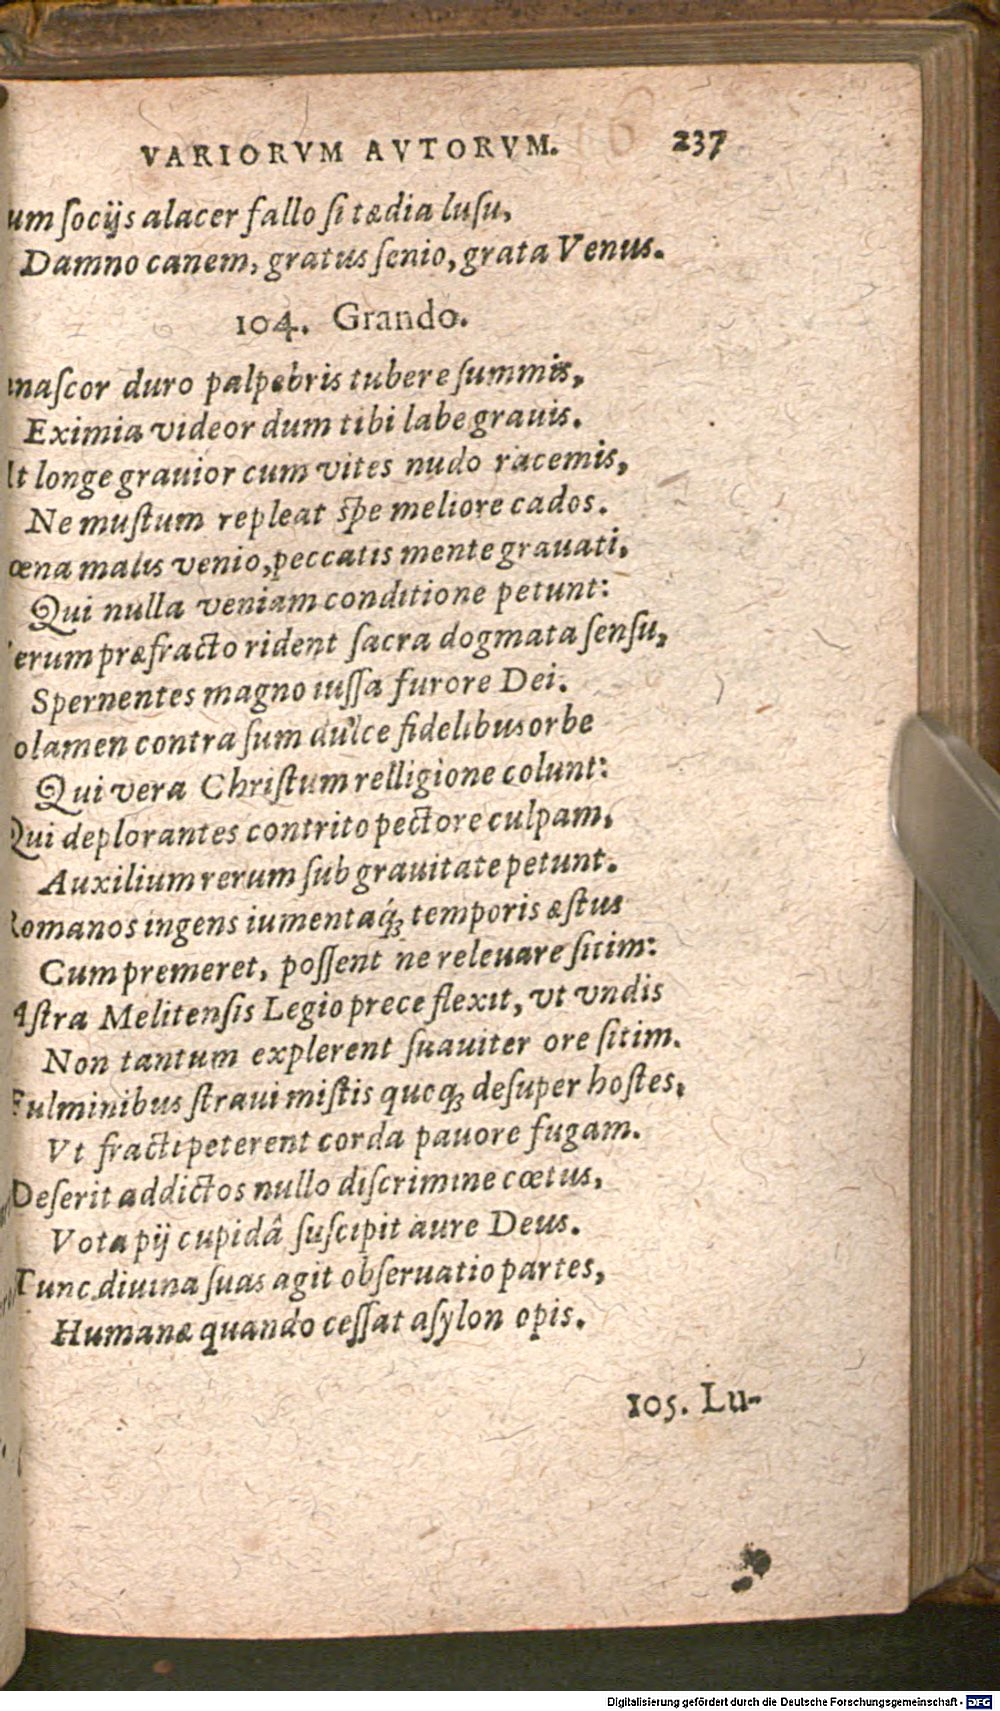 VARIORVM AVTORVM. 237
um ſocijs alacer fallo ſi tædia luſu,
Damno canem, gratus ſenio, grata Venus.
104. Grando.
naſcor duro palpebris tubere ſummis,
Eximia videor dum tibi labe grauis.
t longe grauior cum vites nudo racemis,
Ne muſtum repleat ſpe meliore cados.
œna malis venio, peccatis mente grauati,
Qui nulla veniam conditione petunt:
erum præfracto rident ſacra dogmata ſenſu,
Spernentes magno iuſſa furore Dei.
olamen contra ſum dulce fidelibus orbe
Qui vera Chriſtum relligione colunt:
Qui deplorantes contrito pectore culpam,
Auxilium rerum ſub grauitate petunt.
Romanos ingens iumentaq́ꝫ temporis æſtus
Cum premeret, poſſent ne releuare ſitim:
Aſtra Melitenſis Legio prece flexit, vt vndis
Non tantum explerent ſuauiter ore ſitim.
Fulminibus ſtraui miſtis quoqꝫ deſuper hoſtes,
Vt fracti peterent corda pauore fugam.
Deſerit addictos nullo diſcrimine cœtus,
Vota pij cupidâ ſuſcipit aure Deus.
Tunc diuina ſuas agit obſeruatio partes,
Humanæ quando ceſſat aſylon opis.
105. Lu-
Digitalisierung gefördert durch die Deutsche Forschungsgemeinschaft - DFG